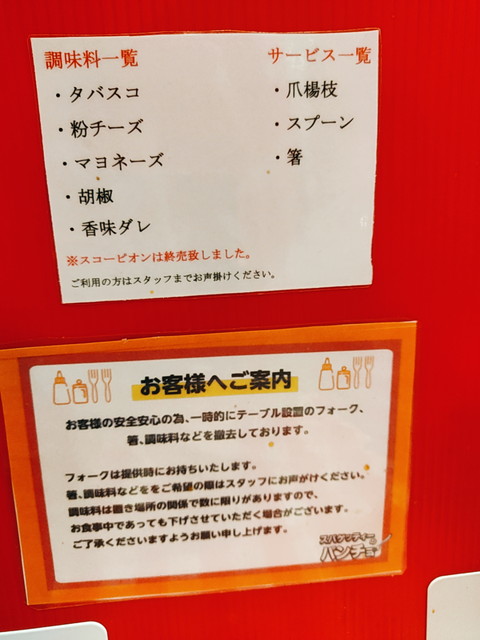 調味料一覧
・タバスコ
・粉チーズ
・マヨネーズ
・胡椒
・香味ダレ
サービス一覧
・爪楊枝
・スプーン
・箸
※スコーピオンは終売致しました。
ご利用の方はスタッフまでお声掛けください。
お客様へご案内
お客様の安全安心の為、一時的にテーブル設置のフォーク、
箸、調味料などを撤去しております。
フォークは提供時にお持ちいたします。
箸、調味料などををご希望の際はスタッフにお声がけください。
調味料は置き場所の関係で数に限りがありますので、
お食事中であっても下げさせていただく場合がございます。
ご了承くださいますようお願い申し上げます。
スパゲッティーの
パンチョ